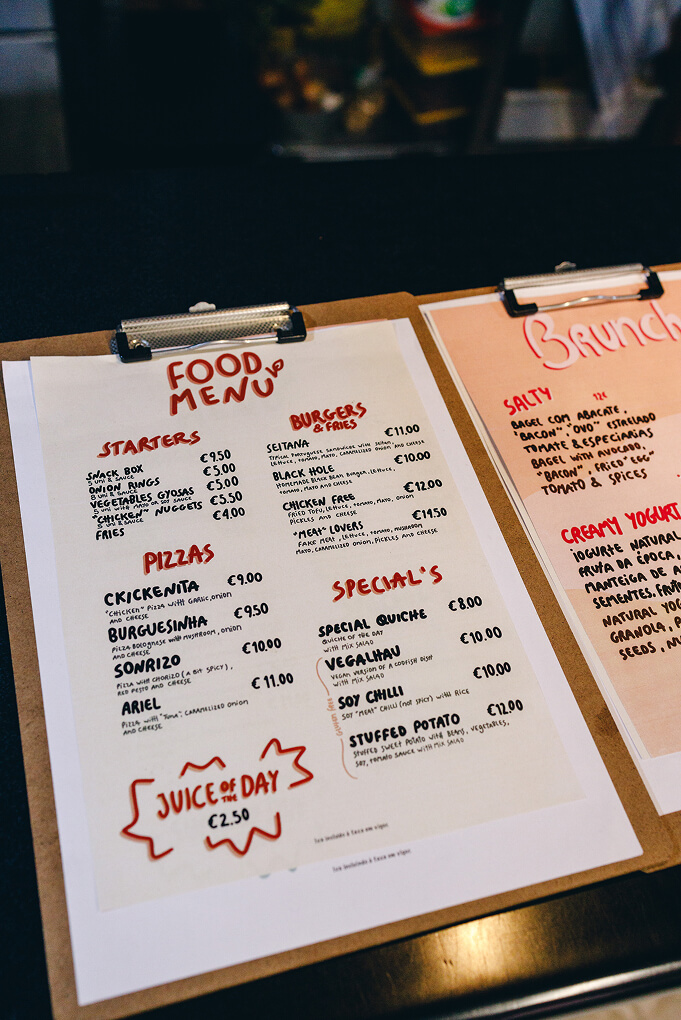 FOOD
MENU
STARTERS
SNACK BOX €9.50
5 UNI & SAUCE
ONION RINGS €5.00
8 UNI & SAUCE
VEGETABLES GYOSAS €5.00
5 UNI WITH MAYO OR SOY SAUCE
"CHICKEN" NUGGETS €5.50
5 UNI & SAUCE
FRIES €4.00
PIZZAS
CKICKENITA €9.00
"CHICKEN" PIZZA WITH GARLIC, ONION
AND CHEESE
BURGUESINHA €9.50
PIZZA BOLOGNESE WITH MUSHROOM, ONION
AND CHEESE
SONRIZO €10.00
PIZZA WITH CHORIZO (A BIT SPICY),
RED PESTO AND CHEESE
ARIEL €11.00
PIZZA WITH "TUNA" CARAMELIZED ONION
AND CHEESE
JUICE OF THE DAY
€2.50
BURGERS
& FRIES
SEITANA €11.00
TYPICAL PORTUGUESE SANDWICH WITH SEITAN, AND CHEESE
LETTUCE, TOMATO, MAYO, CARAMELIZED ONION
BLACK HOLE €10.00
HOMEMADE BLACK BEAN BURGER, LETTUCE,
TOMATO, MAYO AND CHEESE
CHICKEN FREE €12.00
FRIED TOFU, LETTUCE, TOMATO, MAYO, ONION
PICKLES AND CHEESE
"MEAT" LOVERS €14.50
FAKE MEAT, LETTUCE, TOMATO, MUSHROOM
MAYO, CARAMELIZED ONION, PICKLES AND CHEESE
SPECIAL'S
SPECIAL QUICHE €8.00
QUICHE OF THE DAY
WITH MIX SALAD
VEGALHAU €10.00
VEGAN VERSION OF A CODFISH DISH
WITH MIX SALAD
SOY CHILLI €10.00
SOY "MEAT" CHILLI (NOT SPICY) WITH RICE
STUFFED POTATO €12.00
STUFFED SWEET POTATO WITH BEANS, VEGETABLES,
SOY, TOMATO SAUCE WITH MIX SALAD
GLUTEN FREE
Iva incluído à taxa em vigor.
Iva incluindo à taxa em vigor.
BRUNCH
SALTY 12€
BAGEL COM ABACATE,
"BACON" "OVO" ESTRELADO
TOMATE & ESPECIARIAS
BAGEL WITH AVOCADO,
"BACON", FRIED "EGG"
TOMATO & SPICES
CREAMY YOGURT
IOGURTE NATURAL
FRUTA DA ÉPOCA,
MANTEIGA DE
SEMENTES,
NATURAL
GRANOLA,
SEEDS,